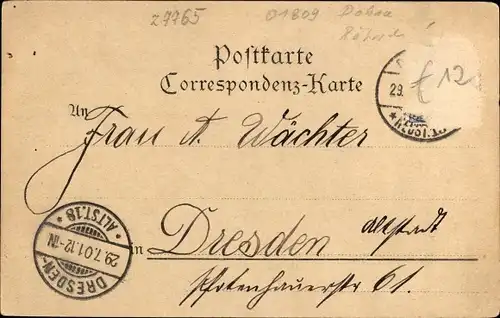 27765
01809 Dohna
Postkarte
Correspondenz-Karte
29.
€ 12
* NEUST. *
An
Frau A. Wächter
in Dresden Altstadt
Photenhauerstr 61.
DRESDEN-ALTST. 18 *
29.7.01.12-1N